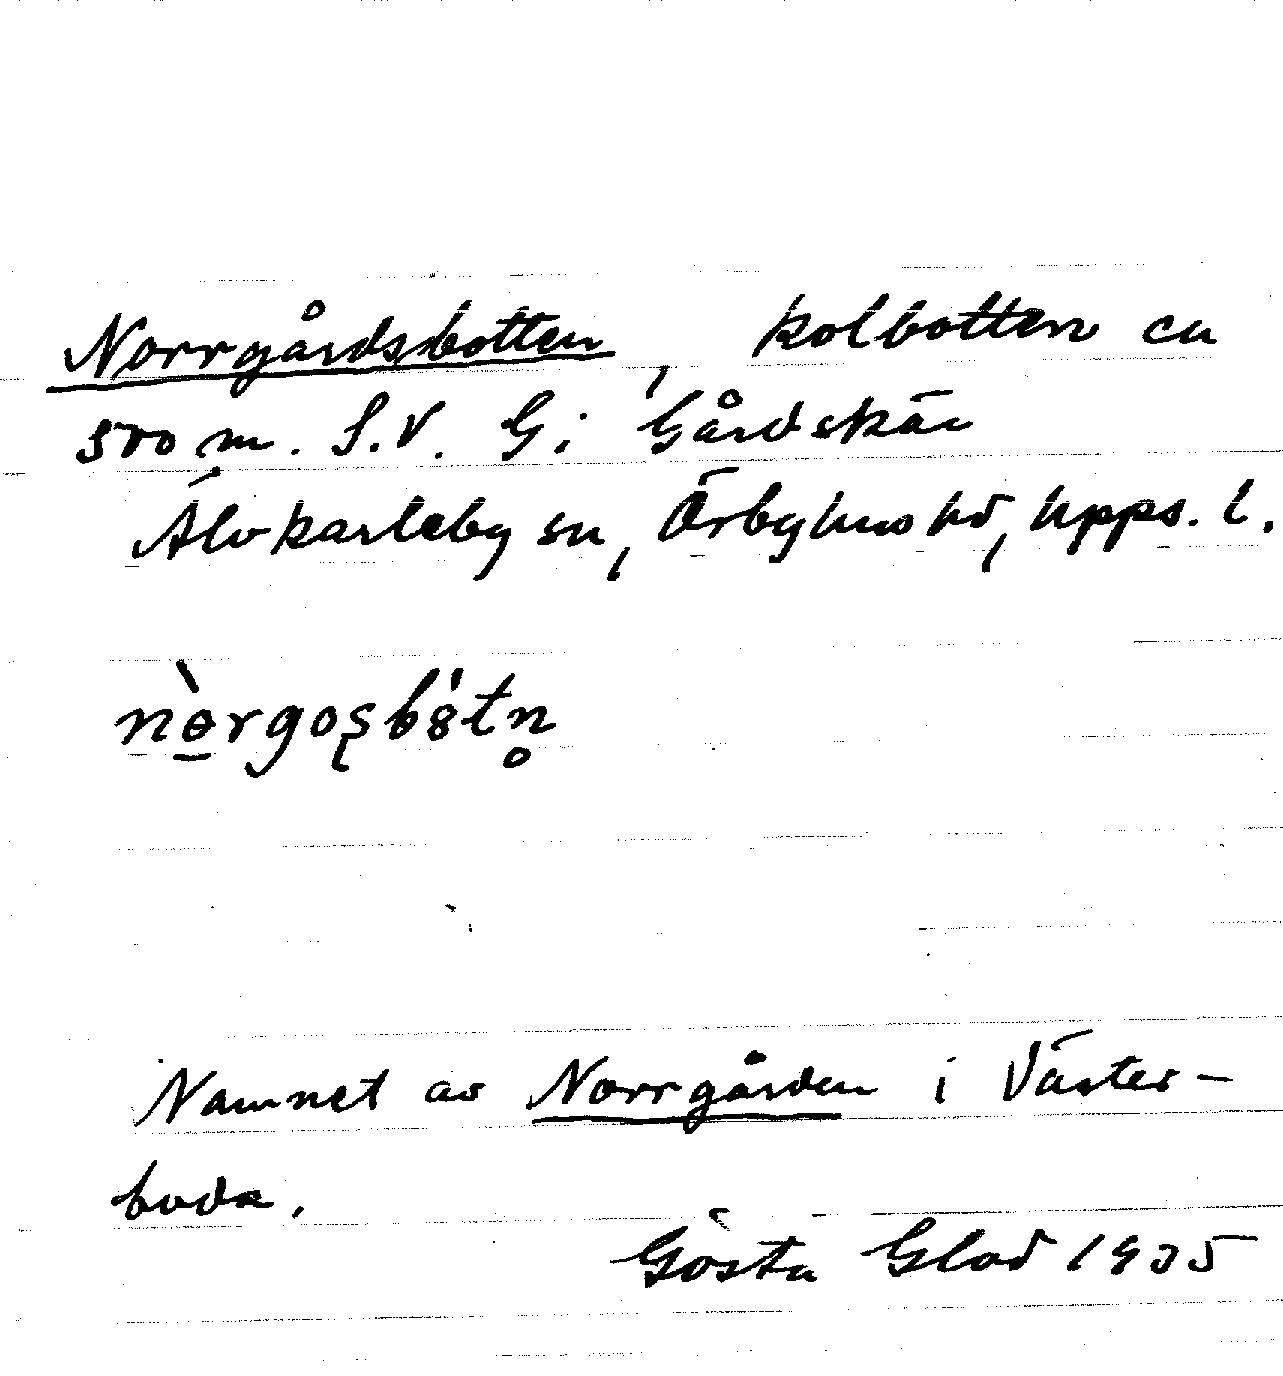 Norrgårdsbotten, kolbotten ca
500 m. S.V. G i Gårdskär
Älvkarleby sn, Örbyhus hd, Upps. l.
nè̠rgoʂbɞ́tn̥
Namnet av Norrgården i Väster-
boda.
Gösta Glad 1935